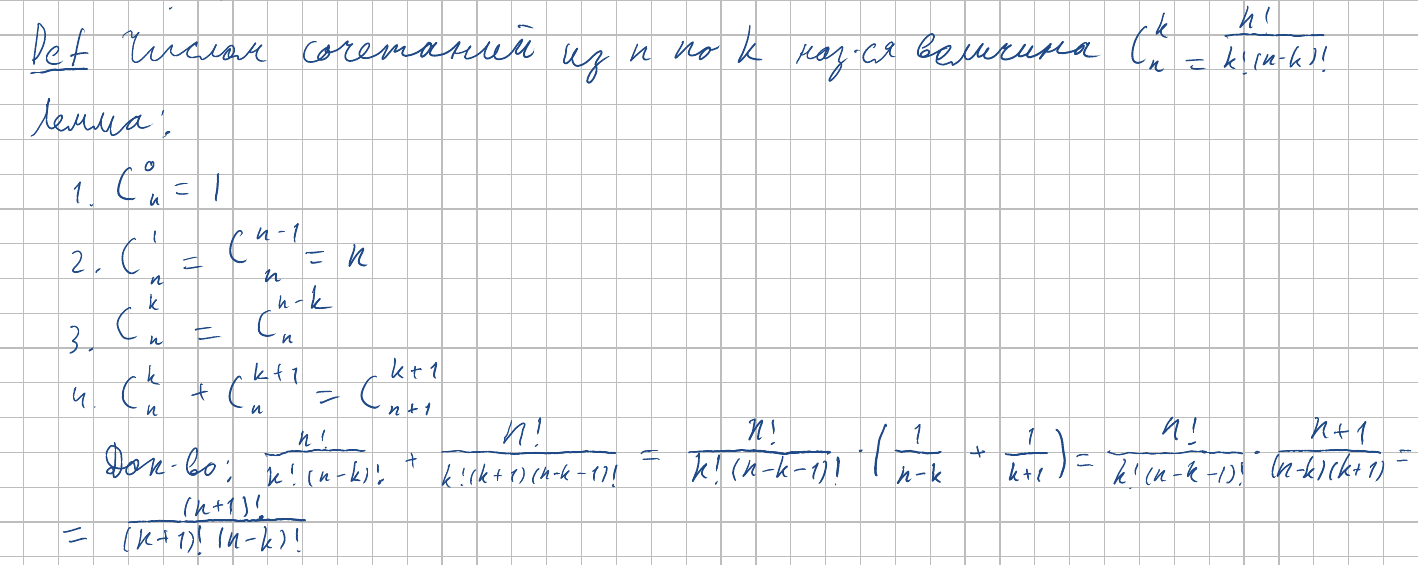 Def Числом сочетаний из n по k наз-ся величина C_n^k = \frac{n!}{k!(n-k)!}
Лемма:
1. C_n^0 = 1
2. C_n^1 = C_n^{n-1} = n
3. C_n^k = C_n^{n-k}
4. C_n^k + C_n^{k+1} = C_{n+1}^{k+1}
Док-во: \frac{n!}{k!(n-k)!} + \frac{n!}{k!(k+1)(n-k-1)!} = \frac{n!}{k!(n-k-1)!} \cdot \left(\frac{1}{n-k} + \frac{1}{k+1}\right) = \frac{n!}{k!(n-k-1)!} \cdot \frac{n+1}{(n-k)(k+1)} =
= \frac{(n+1)!}{(k+1)!(n-k)!}